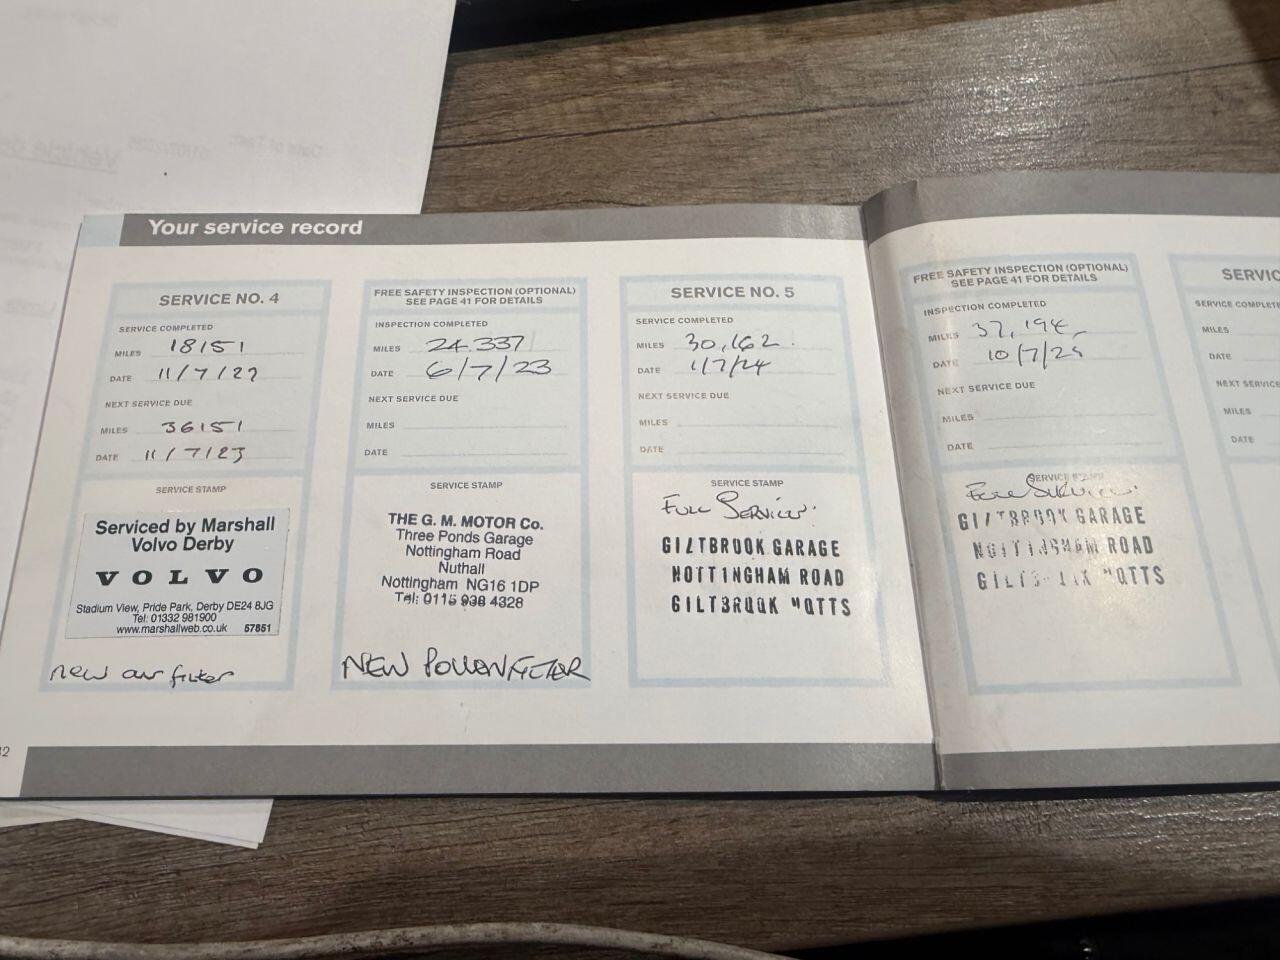 Your service record
SERVICE NO. 4
SERVICE COMPLETED
MILES 18151
DATE 11/7/22
NEXT SERVICE DUE
MILES 36151
DATE 11/7/23
SERVICE STAMP
Serviced by Marshall
Volvo Derby
VOLVO
Stadium View, Pride Park, Derby DE24 8JG
Tel: 01332 981900
www.marshallweb.co.uk 57851
new air filter
FREE SAFETY INSPECTION (OPTIONAL)
SEE PAGE 41 FOR DETAILS
INSPECTION COMPLETED
MILES 24.337
DATE 6/7/23
NEXT SERVICE DUE
MILES
DATE
SERVICE STAMP
THE G. M. MOTOR Co.
Three Ponds Garage
Nottingham Road
Nuthall
Nottingham NG16 1DP
Tel: 0115 938 4328
NEW POLLEN FILTER
SERVICE NO. 5
SERVICE COMPLETED
MILES 30,162
DATE 1/7/24
NEXT SERVICE DUE
MILES
DATE
SERVICE STAMP
Full Service.
GILTBROOK GARAGE
NOTTINGHAM ROAD
GILTBROOK NOTTS
FREE SAFETY INSPECTION (OPTIONAL)
SEE PAGE 41 FOR DETAILS
INSPECTION COMPLETED
MILES 37,194
DATE 10/7/25
NEXT SERVICE DUE
MILES
DATE
SERVICE STAMP
Full Service.
GILTBROOK GARAGE
NOTTINGHAM ROAD
GILTBROOK NOTTS
SERVIC
SERVICE COMPLETE
MILES
DATE
NEXT SERVICE
MILES
DATE